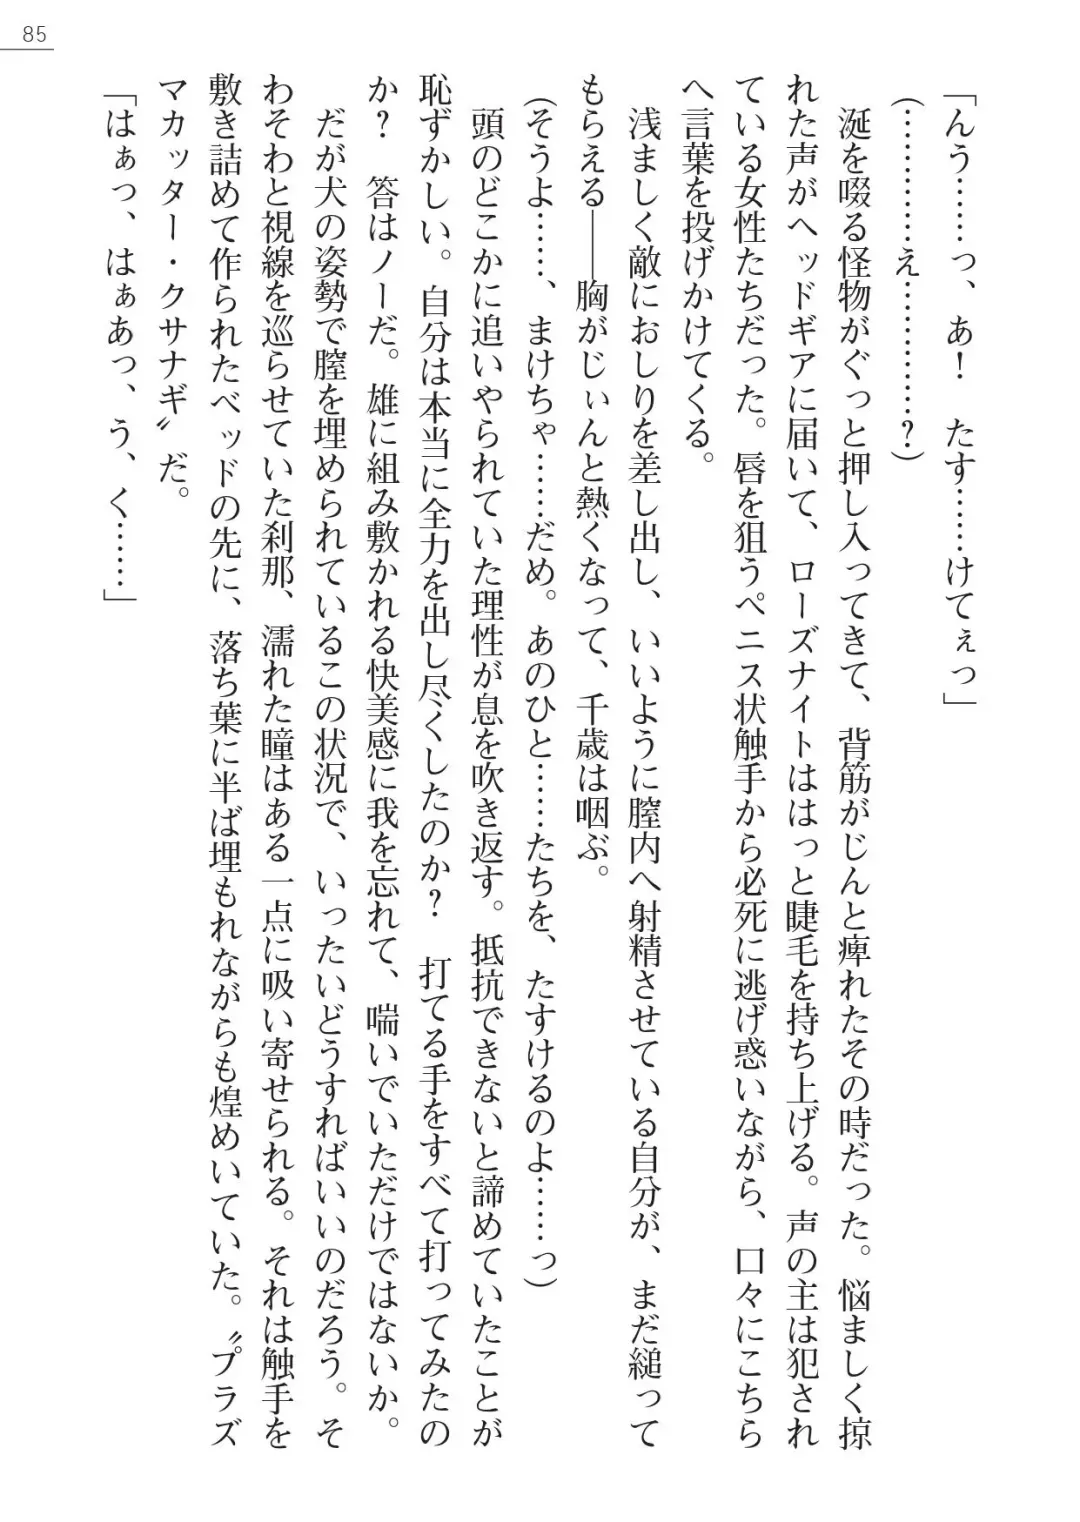 85
「んう……っ、あ！　たす……けてぇっ」
（…………え…………？）
　涎を啜る怪物がぐっと押し入ってきて、背筋がじんと痺れたその時だった。悩ましく掠
れた声がヘッドギアに届いて、ローズナイトははっと睫毛を持ち上げる。声の主は犯され
ている女性たちだった。唇を狙うペニス状触手から必死に逃げ惑いながら、口々にこちら
へ言葉を投げかけてくる。
　浅ましく敵におしりを差し出し、いいように膣内へ射精させている自分が、まだ縋って
もらえる――胸がじぃんと熱くなって、千歳は咽ぶ。
（そうよ……、まけちゃ……だめ。あのひと……たちを、たすけるのよ……っ）
　頭のどこかに追いやられていた理性が息を吹き返す。抵抗できないと諦めていたことが
恥ずかしい。自分は本当に全力を出し尽くしたのか？　打てる手をすべて打ってみたの
か？　答はノーだ。雄に組み敷かれる快美感に我を忘れて、喘いでいただけではないか。
　だが犬の姿勢で膣を埋められているこの状況で、いったいどうすればいいのだろう。そ
わそわと視線を巡らせていた刹那、濡れた瞳はある一点に吸い寄せられる。それは触手を
敷き詰めて作られたベッドの先に、落ち葉に半ば埋もれながらも煌めいていた。〝プラズ
マカッター・クサナギ〟だ。
「はぁっ、はぁあっ、う、く……」